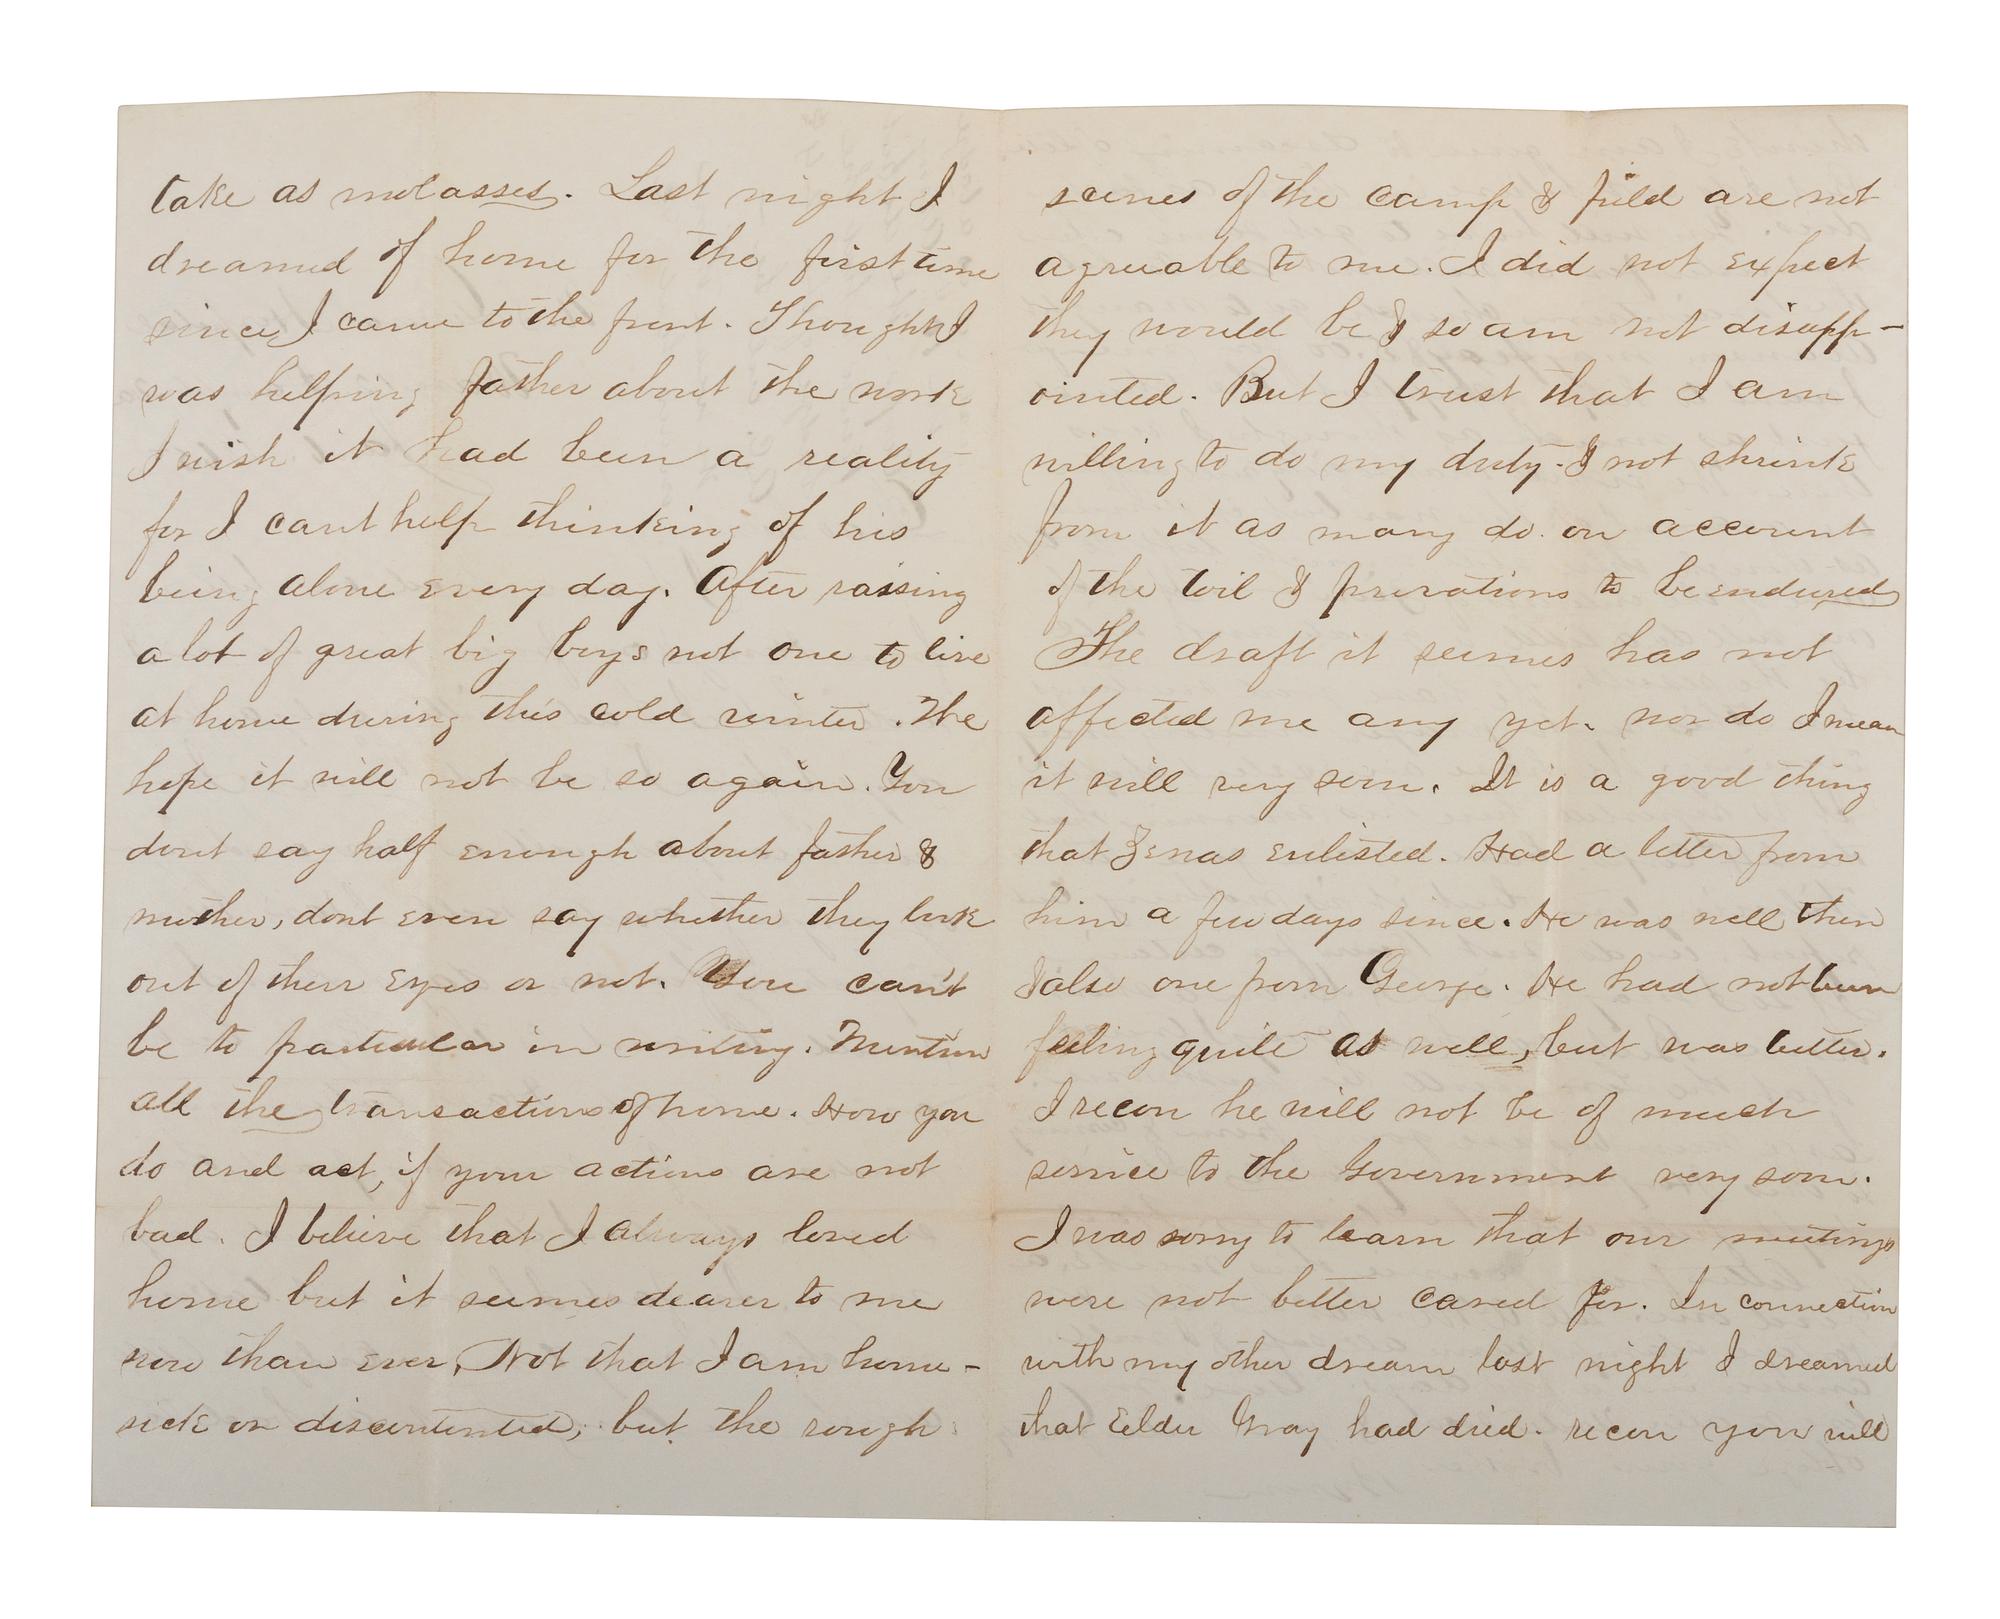 take as molasses. Last night I
dreamed of home for the first time
since I came to the front. Thought I
was helping father about the work
I wish it had been a reality
for I cant help thinking of his
being alone every day. After raising
a lot of great big boys not one to live
at home during this cold winter. The
hope it will not be so again. You
dont say half enough about father &
mother, dont even say whether they look
out of their eyes or not. You can't
be to particular in writing. Mention
all the transactions of home. How you
do and act, if your actions are not
bad. I believe that I always loved
home but it seemes dearer to me
now than ever, Not that I am home-
sick or discontented; but the rough
scenes of the camp & field are not
agreeable to me. I did not expect
they would be & so am not disapp-
ointed. But I trust that I am
willing to do my duty. & not shrink
from it as many do. on account
of the toil & privations to be endured
The draft it seemes has not
affected me any yet. nor do I mean
it will very soon. It is a good thing
that Zenas enlisted. Had a letter from
him a few days since. He was well then
& also one from George. He had not been
feeling quite as well, but was better.
I recon he will not be of much
service to the Government very soon.
I was sorry to learn that our meetings
were not better cared for. In connection
with my other dream last night I dreamed
that Eelder Gray had died. recon you will